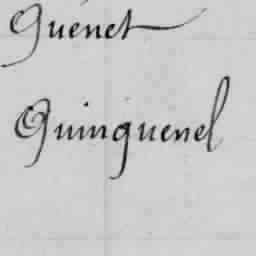 Quenet
Quinquenel